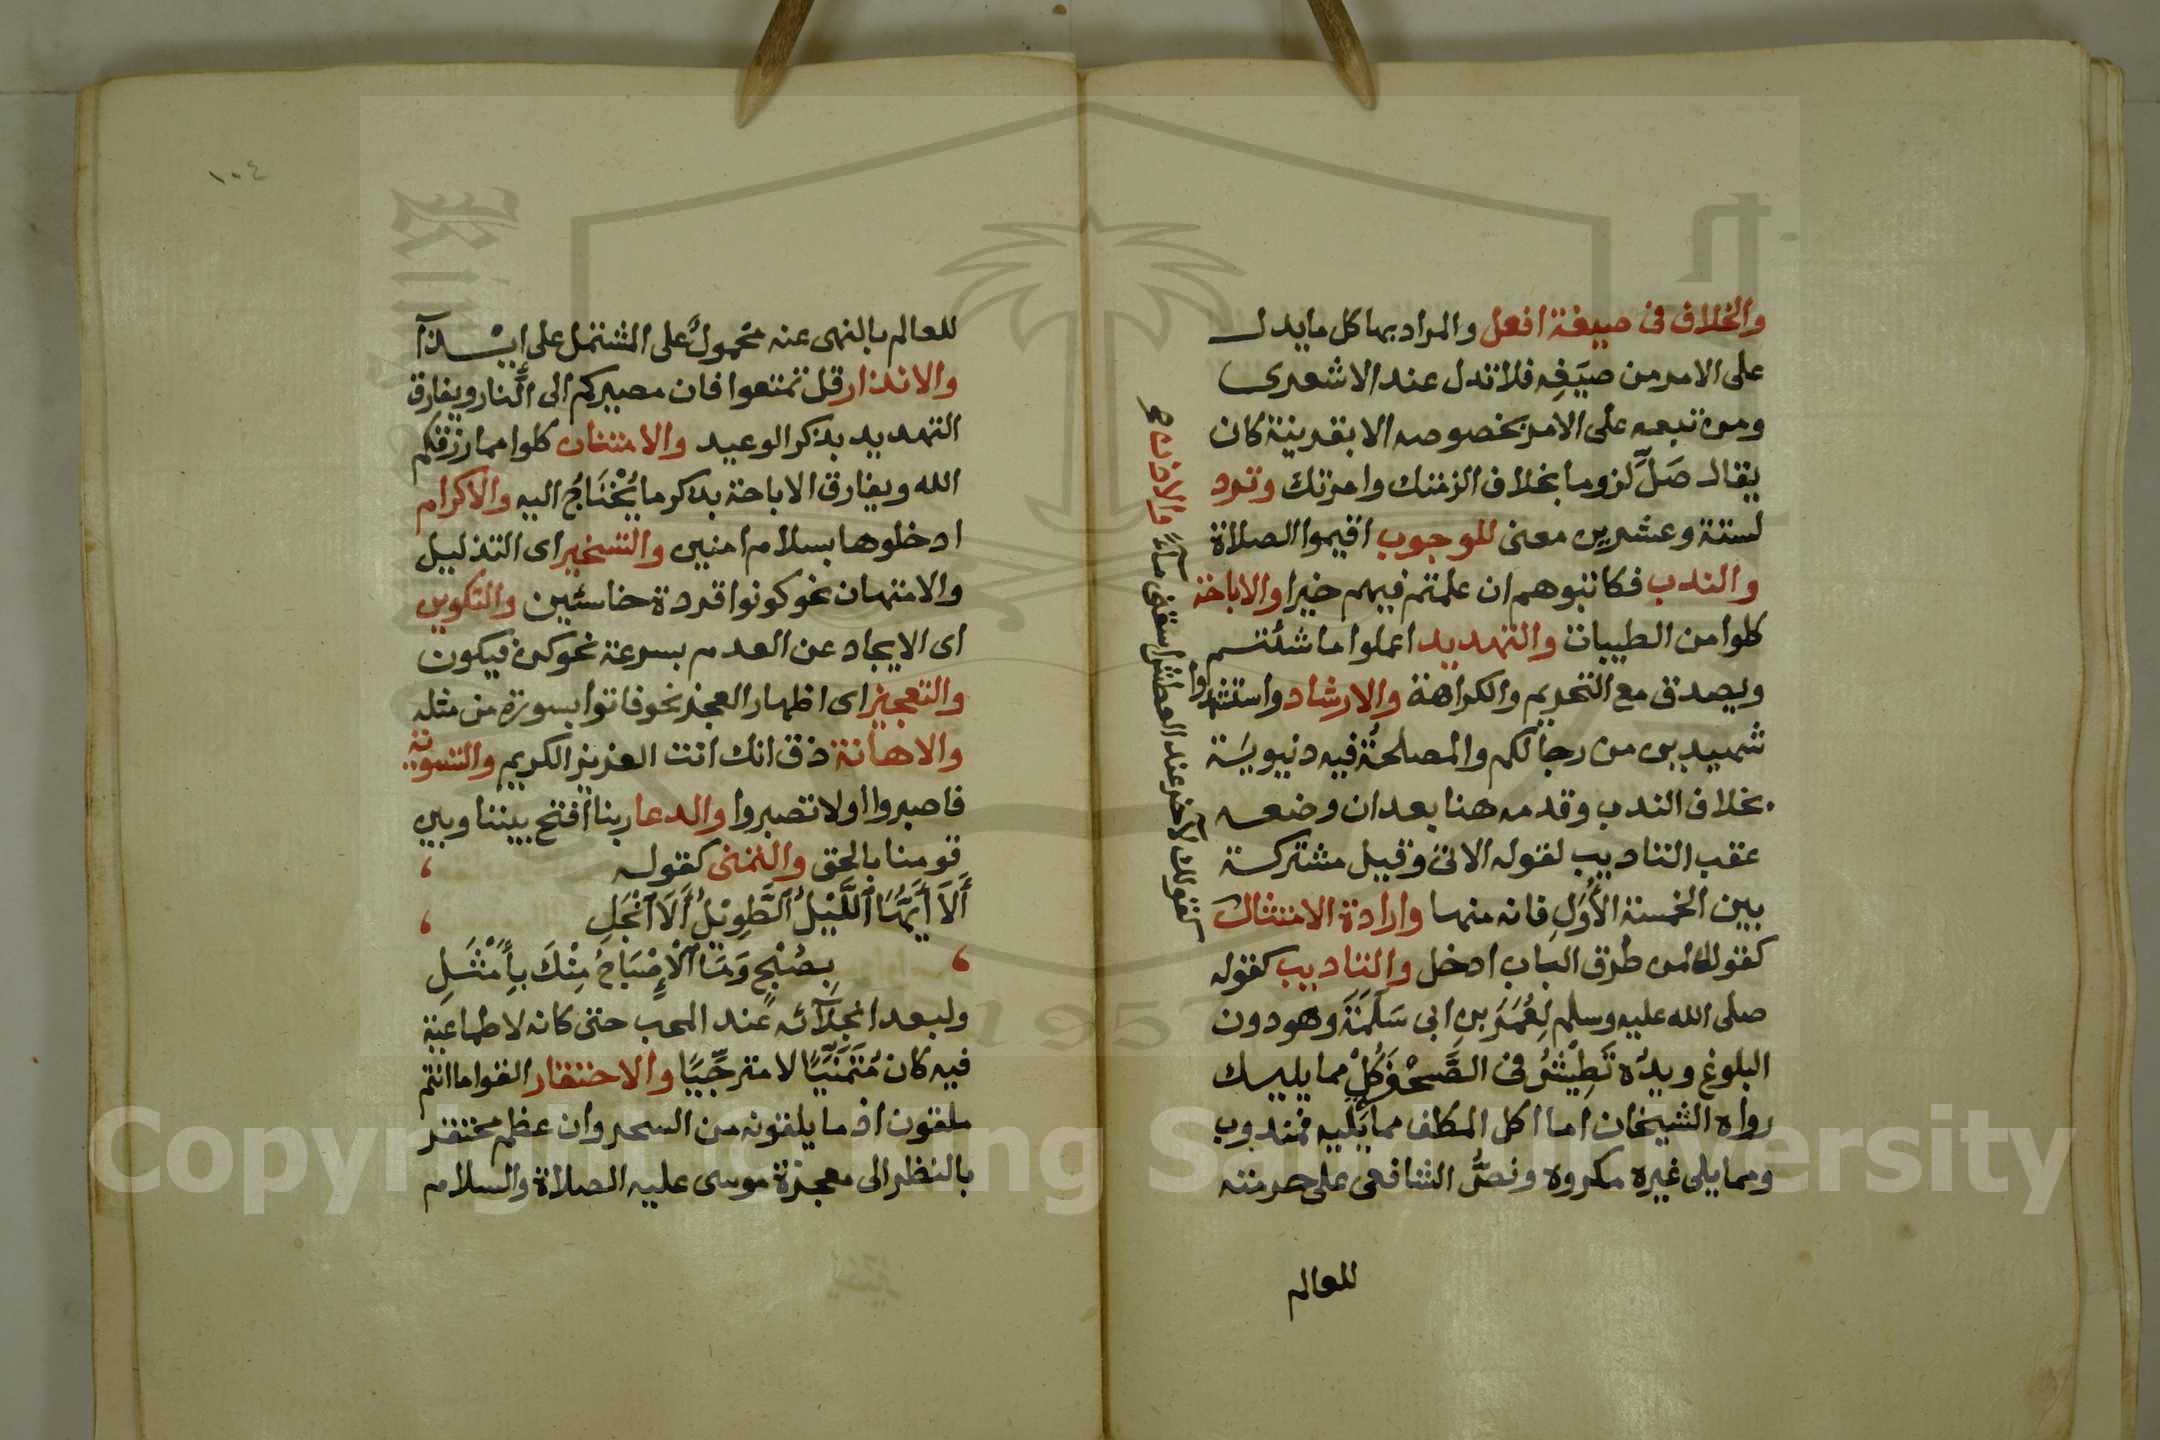 والخلاف في صيغة افعل والمراد بها كل ما يدل
على الامر من صيَغِه فلا تدل عند الاشعرى
ومن تبعه على الامر بخصوصه الا بقرينة كان
يقال صَلِّ لزوما بخلاف الزمتك وامرتك وترد
لستة وعشرين معنى للوجوب اقيموا الصلاة
والندب فكاتبوهم ان علمتم فيهم خيرا والاباحة
كلوا من الطيبات والتهديد اعملوا ما شئتم
ويصدق مع التحريم والكراهة والارشاد واستشهدوا
شهيدين من رجالكم والمصلحةُ فيه دنيويَة
بخلاف الندب وقدمه هنا بعد ان وضعه
عقب التاديب لقوله الاتى وقيل مشتركة
بين الخمسة الأُوَلِ فانه منها وارادة الامتثال
كقولك لمن طرق الباب ادخل والتاديب كقوله
صلى الله عليه وسلم لِعُمَرَ بنِ ابى سَلَمَةَ وهو دون
البلوغ ويدُه تَطِيْشُ في الصَّحْفَة كُلْ مما يليك
رواه الشيخان اما اكل المكلف مما يَلِيه فمندوب
ومما يلى غيره مكروه ونصُّ الشافعى على حرمته
للعالم
والاذن
كقولك لاخر عند العطش اسقنى ماءً
١٠٤
للعالم بالنهى عنه محمولٌ على المشتمل على ايْذآ
والانذار قل تمتعوا فان مصيركم الى النار ويفارق
التهديد بذكر الوعيد والامتنان كلوا مما رزقكم
الله ويفارق الاباحة بذكر ما يُحْتَاجُ اليه والاكرام
ادخلوها بسلام امنين والتسخير اى التذليل
والامتهان نحو كونوا قردة خاسئين والتكوين
اى الايجاد عن العدم بسرعة نحو كن فيكون
والتعجيز اى اظهار العجز نحو فاتوا بسورة من مثله
والاهانة ذق انك انت العزيز الكريم والتسوية
فاصبروا اولا تصبروا والدعا ربنا افتح بيننا وبين
قومنا بالحق والتمنى كقوله
أَلَا أَيُّهَا اللَّيْلُ الطَّوِيْلُ أَلَا انْجَلِ
بِصُبْحٍ وَمَا الْإِصْبَاحُ مِنْكَ بِأَمْثَلِ
ولبعد انجلآئه عند المحب حتى كانه لا طماعية
فيه كان مُتَمَنِّيًا لا مترجِّيًا والاحتقار القوا ما انتم
ملقون اذ ما يلقونه من السحر وان عظم محتقر
بالنظر الى معجزة موسى عليه الصلاة والسلام
1957
Copyright (c) King Saud University